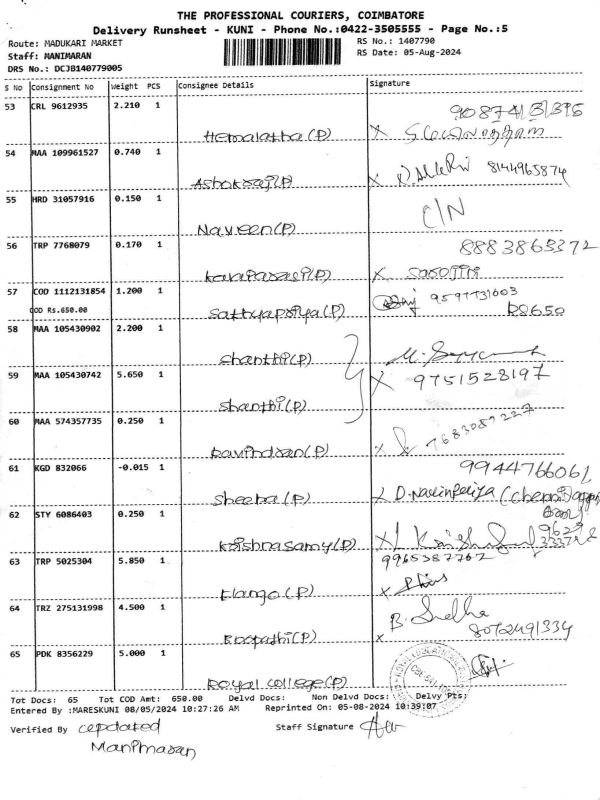 THE PROFESSIONAL COURIERS, COIMBATORE
Delivery Runsheet - KUNI - Phone No.:0422-3505555 - Page No.:5
Route: MADUKARI MARKET
RS No.: 1407790
Staff: MANIMARAN
RS Date: 05-Aug-2024
DRS No.: DCJB140779005
S No Consignment No Weight PCS Consignee Details Signature
53 CRL 9612935 2.210 1
Hemalatha(P) X
54 MAA 109961527 0.740 1
Ashokraj(P) X 8144965874
55 HRD 31057916 0.150 1
C/N
Naveen(P)
56 TRP 7768079 0.170 1 8883863372
X
57 COD 1112131854 1.200 1
COD Rs.650.00 Rs650
Sathyapriya(P)
58 MAA 105430902 2.200 1
Shanthi(P)
59 MAA 105430742 5.650 1 X 9751528197
Shanthi(P)
60 MAA 574357735 0.250 1
Ravindran(P) x 7683087227
61 KGD 832066 -0.015 1 9944766061
Sheeba(P) X
62 STY 6086403 0.250 1
Krishnasamy(P) X
63 TRP 5025304 5.850 1 9965387762
Elango(P) x
64 TRZ 275131998 4.500 1
Boopathi(P) x 8072491334
65 PDK 8356229 5.000 1
Royal College(P)
Tot Docs: 65 Tot COD Amt: 650.00 Delvd Docs: Non Delvd Docs: Delvy Pts:
Entered By :MARESKUNI 08/05/2024 10:27:26 AM Reprinted On: 05-08-2024 10:39:07
Verified By Staff Signature
Manimaran